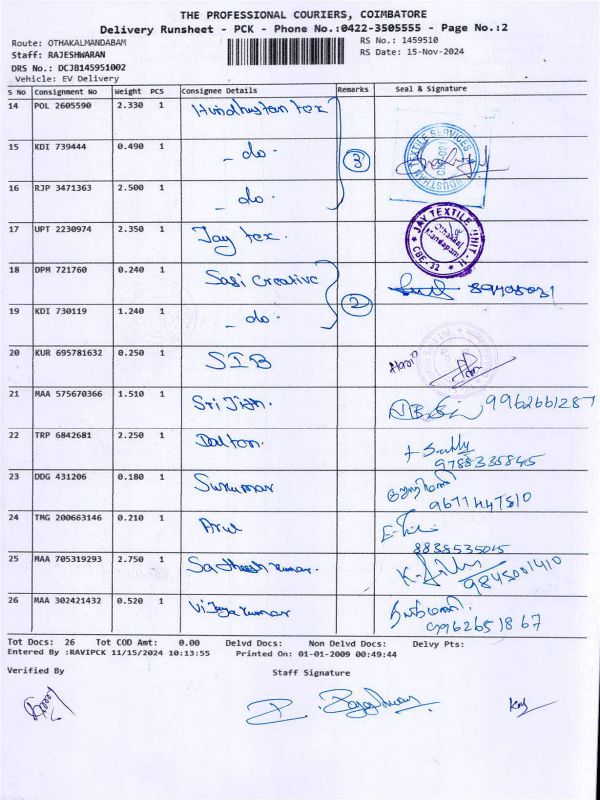 THE PROFESSIONAL COURIERS, COIMBATORE
Delivery Runsheet - PCK - Phone No.:0422-3505555 - Page No.:2
Route: OTHAKALMANDABAM RS No.: 1459510
Staff: RAJESHWARAN RS Date: 15-Nov-2024
DRS No.: DCJB145951002
Vehicle: EV Delivery
S No Consignment No Weight PCS Consignee Details Remarks Seal & Signature
14 POL 2605590 2.330 1 Hindhustan tex
15 KDI 739444 0.490 1 - do - 3
16 RJP 3471363 2.500 1 - do -
HINDUSTHAN TEXTILE SERVICES
17 UPT 2230974 2.350 1 Jay tex.
JAY TEXTILE UNIT-II Othakal Mandapam CBE-32
18 DPM 721760 0.240 1 Sasi Creative 2
19 KDI 730119 1.240 1 - do -
20 KUR 695781632 0.250 1 SIB
21 MAA 575670366 1.510 1 Sri Jith. 9962661287
22 TRP 6842681 2.250 1 Dalton.
9788335845
23 DDG 431206 0.180 1 Sukumar
9677447810
24 TMG 200663146 0.210 1 Arul
8838535015
25 MAA 705319293 2.750 1 Sathesh kumar.
9843001410
26 MAA 302421432 0.520 1 Vijayakumar
9962651867
Tot Docs: 26 Tot COD Amt: 0.00 Delvd Docs: Non Delvd Docs: Delvy Pts:
Entered By :RAVIPCK 11/15/2024 10:13:55 Printed On: 01-01-2009 00:49:44
Verified By Staff Signature